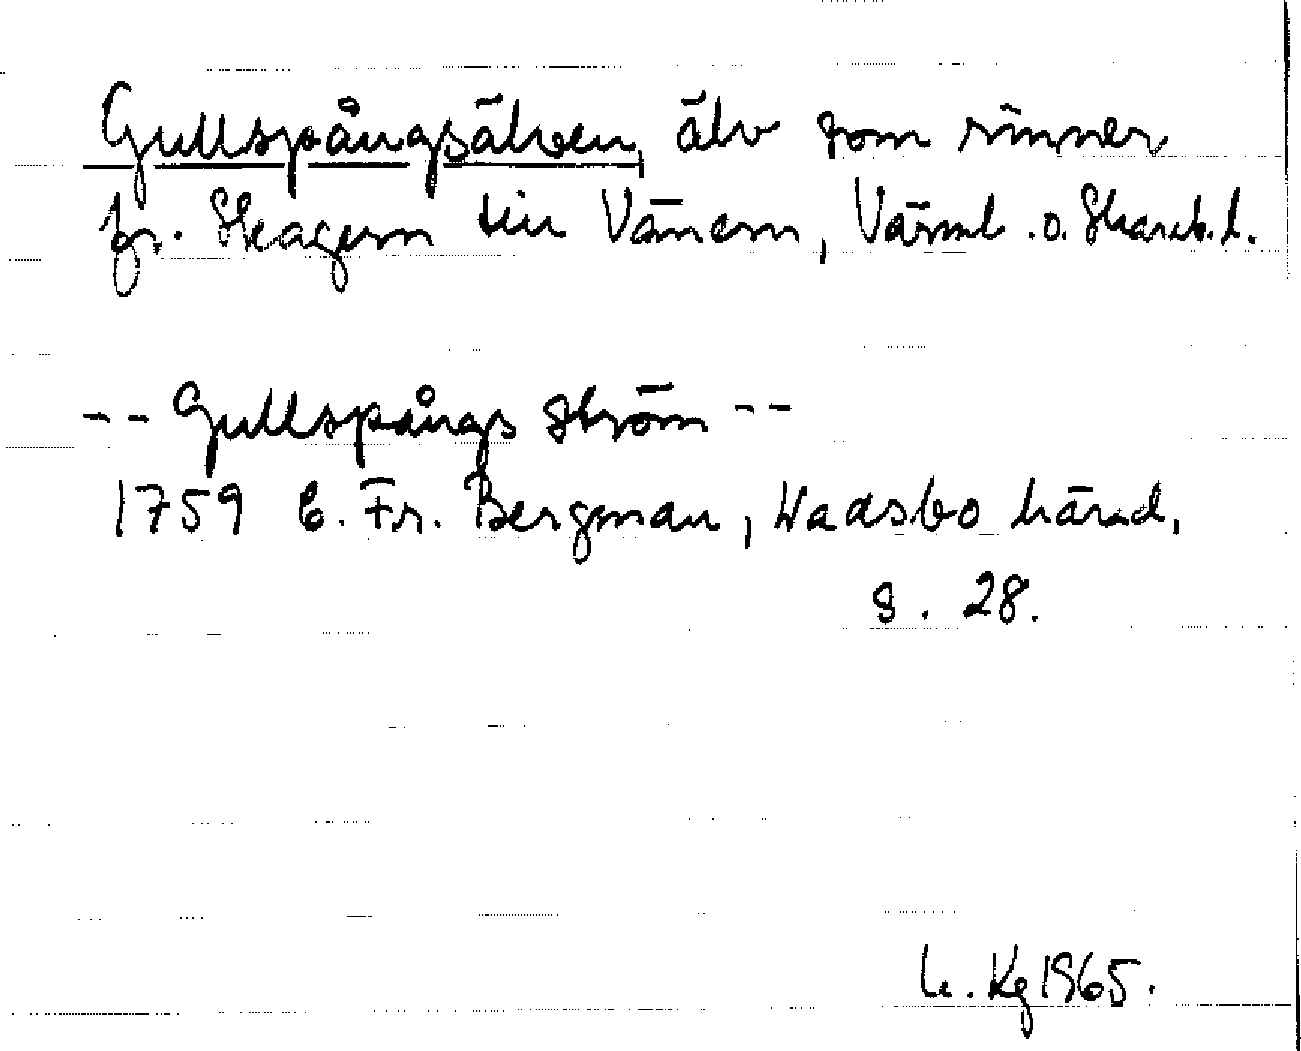 Gullspångsälven, älv som rinner
fr. Skagern till Vänern, Värml. o. Skarab. l.
-- Gullspångs ström --
1759 C. Fr. Bergman, Wadsbo härad,
s. 28.
Kg 1965.